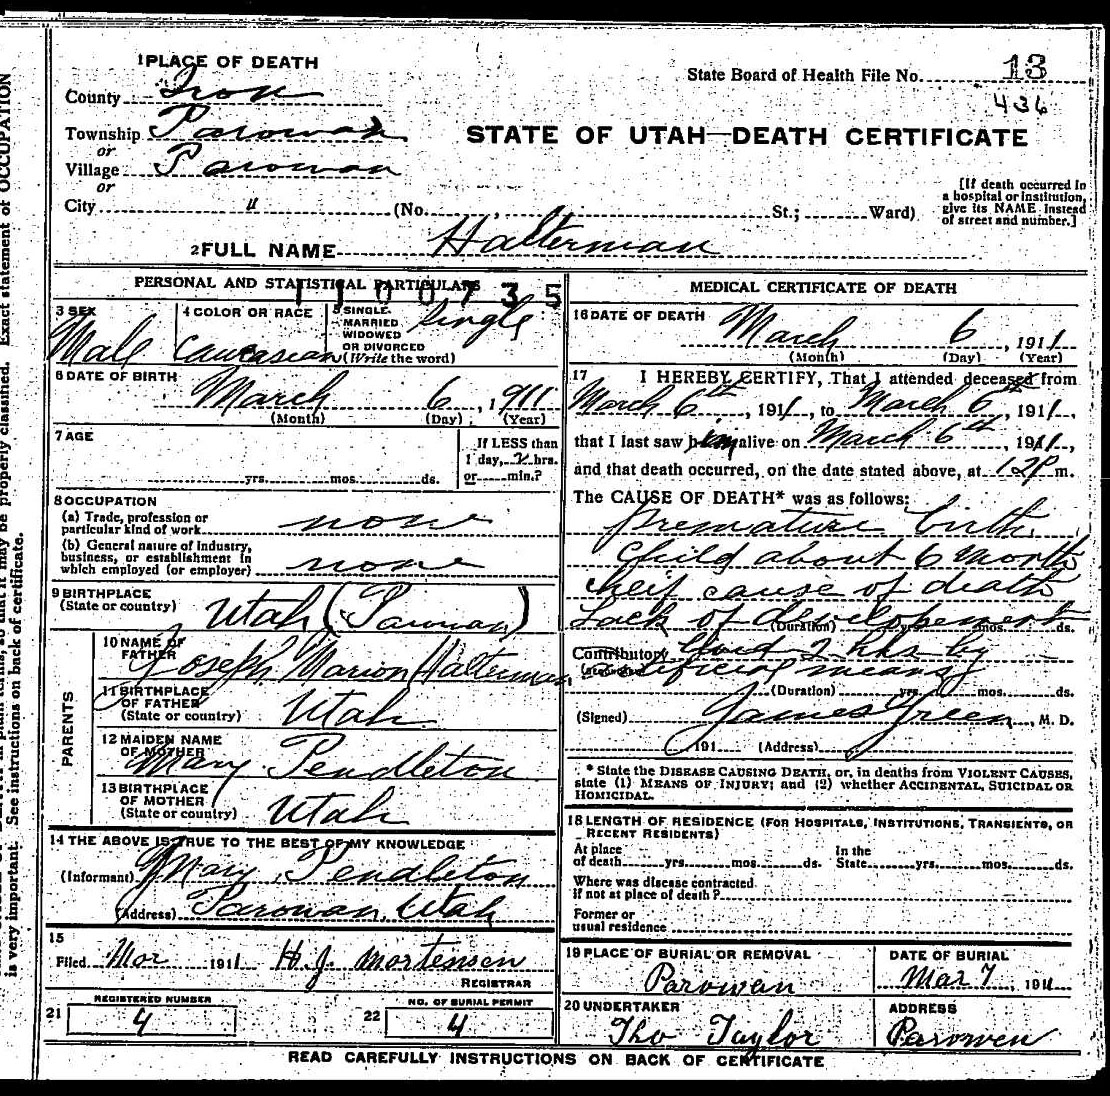 1 PLACE OF DEATH
State Board of Health File No. 13
436
County Iron
Township Parowan
or
Village Parowan
or
City "
STATE OF UTAH—DEATH CERTIFICATE
(No. , St.; Ward)
[If death occurred in a hospital or institution, give its NAME instead of street and number.]
2 FULL NAME Halterman
PERSONAL AND STATISTICAL PARTICULARS
1100735
3 SEX
Male
4 COLOR OR RACE
Caucasian
5 SINGLE,
MARRIED
WIDOWED
OR DIVORCED
(Write the word)
Single
6 DATE OF BIRTH
March 6, 1911
(Month) (Day) (Year)
7 AGE
yrs. mos. ds.
If LESS than
1 day, 2 hrs.
or min.?
8 OCCUPATION
(a) Trade, profession or
particular kind of work none
(b) General nature of Industry,
business, or establishment in
which employed (or employer) none
9 BIRTHPLACE
(State or country) Utah (Parowan)
PARENTS
10 NAME OF
FATHER Joseph Marion Halterman
11 BIRTHPLACE
OF FATHER
(State or country) Utah
12 MAIDEN NAME
OF MOTHER Mary Pendleton
13 BIRTHPLACE
OF MOTHER
(State or country) Utah
14 THE ABOVE IS TRUE TO THE BEST OF MY KNOWLEDGE
(Informant) Mary Pendleton
(Address) Parowan, Utah
15
Filed Mar 1911 H. J. Mortensen
REGISTRAR
21 REGISTERED NUMBER
4
22 NO. OF BURIAL PERMIT
4
MEDICAL CERTIFICATE OF DEATH
16 DATE OF DEATH
March 6, 1911
(Month) (Day) (Year)
17 I HEREBY CERTIFY, That I attended deceased from
March 6th, 1911, to March 6th, 1911,
that I last saw him alive on March 6th, 1911,
and that death occurred, on the date stated above, at m.
The CAUSE OF DEATH* was as follows:
premature birth
Child about 6 month
cheif cause of death
Lack of developement
(Duration) yrs. mos. ds.
Contributory lived 2 hrs by
artificial means
(Duration) yrs. mos. ds.
(Signed) James Green, M. D.
191 (Address)
* State the DISEASE CAUSING DEATH, or, in deaths from VIOLENT CAUSES,
state (1) MEANS OF INJURY; and (2) whether ACCIDENTAL, SUICIDAL OR
HOMICIDAL.
18 LENGTH OF RESIDENCE (FOR HOSPITALS, INSTITUTIONS, TRANSIENTS, OR
RECENT RESIDENTS)
At place
of death yrs. mos. ds.
In the
State yrs. mos. ds.
Where was disease contracted
if not at place of death?
Former or
usual residence
19 PLACE OF BURIAL OR REMOVAL
Parowan
DATE OF BURIAL
Mar 7, 1911
20 UNDERTAKER
Tho Taylor
ADDRESS
Parowan
READ CAREFULLY INSTRUCTIONS ON BACK OF CERTIFICATE
it may be properly classified. Exact statement of OCCUPATION
is very important. See instructions on back of certificate.